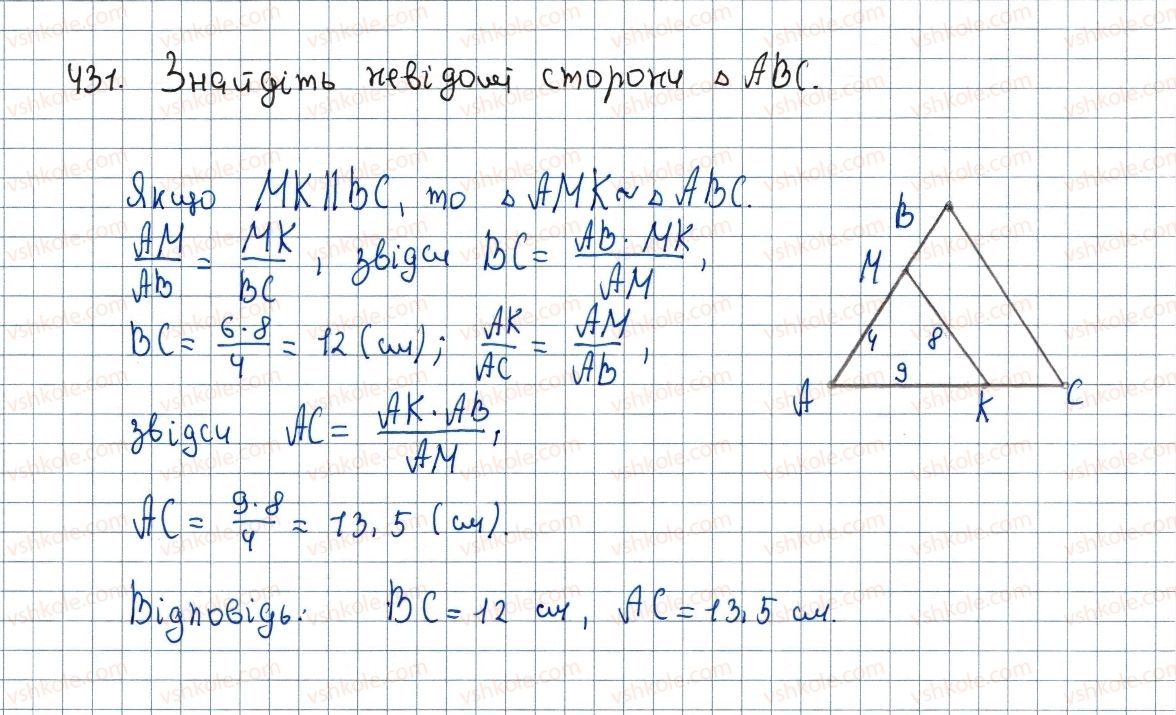 431. Знайдіть невідомі сторони △ ABC.
Якщо MK || BC, то △ AMK ~ △ ABC.
AM/AB = MK/BC, звідси BC = AB · MK/AM,
BC = 6·8/4 = 12 (см); AK/AC = AM/AB,
звідси AC = AK · AB/AM,
AC = 9·8/4 = 13,5 (см).
Відповідь: BC = 12 см, AC = 13,5 см.
B
M
4
8
9
A
K
C
vshkole.com